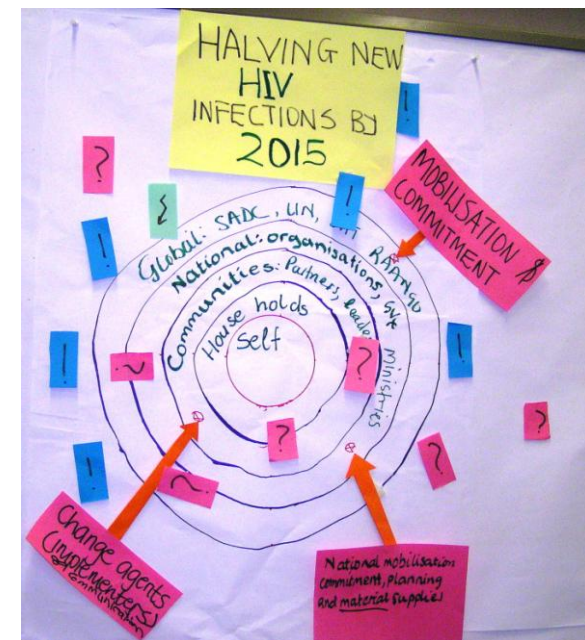 HALVING NEW
HIV
INFECTIONS BY
2015
!
?
!
!
MOBILISATION &
COMMITMENT
Global: SADC, UN,
National: organisations, Gvt
ministries
Communities: Partners, leade
House holds
self
!
?
?
!
?
?
?
!
?
Change agents
(implementers)
of communication
National mobilisation
commitment, planning
and material supplies